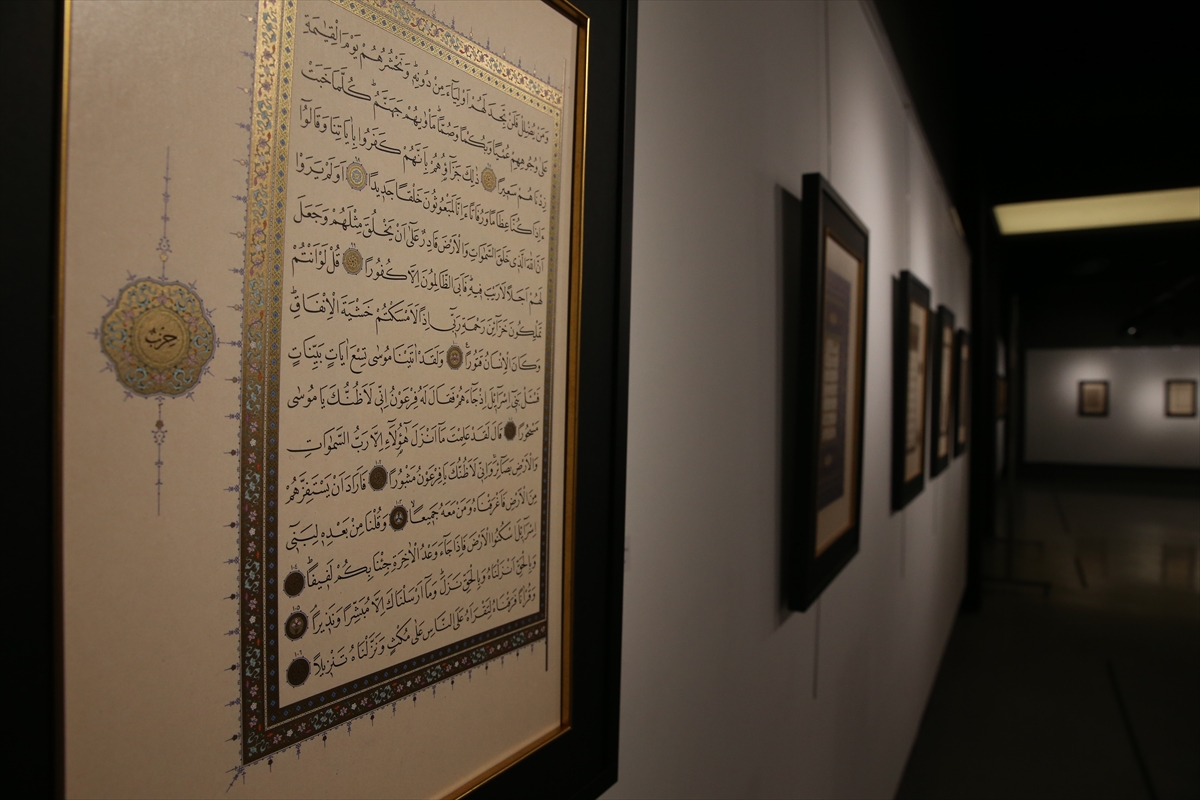 وَمَنْ يُضْلِلْ فَلَنْ تَجِدَ لَهُمْ اَوْلِيَٓاءَ مِنْ دُونِهٖ وَنَحْشُرُهُمْ يَوْمَ الْقِيٰمَةِ
عَلٰى وُجُوهِهِمْ عُمْيًا وَبُكْمًا وَصُمًّا مَأْوٰيهُمْ جَهَنَّمُ كُلَّمَا خَبَتْ
زِدْنَاهُمْ سَعٖيرًا ذٰلِكَ جَزَٓاؤُهُمْ بِاَنَّهُمْ كَفَرُوا بِاٰيَاتِنَا وَقَالُٓوا
ءَاِذَا كُنَّا عِظَامًا وَرُفَاتًا ءَاِنَّا لَمَبْعُوثُونَ خَلْقًا جَدٖيدًا ٩٨ اَوَلَمْ يَرَوْا
اَنَّ اللّٰهَ الَّذٖى خَلَقَ السَّمٰوَاتِ وَالْاَرْضَ قَادِرٌ عَلٰٓى اَنْ يَخْلُقَ مِثْلَهُمْ وَجَعَلَ
لَهُمْ اَجَلًا لَا رَيْبَ فٖيهِ فَاَبَى الظَّالِمُونَ اِلَّا كُفُورًا ٩٩ قُلْ لَوْ اَنْتُمْ
تَمْلِكُونَ خَزَٓائِنَ رَحْمَةِ رَبّٖٓى اِذًا لَاَمْسَكْتُمْ خَشْيَةَ الْاِنْفَاقِ
وَكَانَ الْاِنْسَانُ قَتُورًا وَلَقَدْ اٰتَيْنَا مُوسٰى تِسْعَ اٰيَاتٍ بَيِّنَاتٍ
فَسْـَٔلْ بَنٖٓى اِسْرَٓائٖلَ اِذْ جَٓاءَهُمْ فَقَالَ لَهُ فِرْعَوْنُ اِنّٖى لَاَظُنُّكَ يَا مُوسٰى
مَسْحُورًا قَالَ لَقَدْ عَلِمْتَ مَٓا اَنْزَلَ هٰٓؤُلَٓاءِ اِلَّا رَبُّ السَّمٰوَاتِ
وَالْاَرْضِ بَصَٓائِرَ وَاِنّٖى لَاَظُنُّكَ يَا فِرْعَوْنُ مَثْبُورًا ١٠٢ فَاَرَادَ اَنْ يَسْتَفِزَّهُمْ
مِنَ الْاَرْضِ فَاَغْرَقْنَاهُ وَمَنْ مَعَهُ جَمٖيعًا ١٠٣ وَقُلْنَا مِنْ بَعْدِهٖ لِبَنٖٓى
اِسْرَٓائٖلَ اسْكُنُوا الْاَرْضَ فَاِذَا جَٓاءَ وَعْدُ الْاٰخِرَةِ جِئْنَا بِكُمْ لَفٖيفًا ١٠٤
وَبِالْحَقِّ اَنْزَلْنَاهُ وَبِالْحَقِّ نَزَلَ وَمَٓا اَرْسَلْنَاكَ اِلَّا مُبَشِّرًا وَنَذٖيرًا ١٠٥
وَقُرْاٰنًا فَرَقْنَاهُ لِتَقْرَاَهُ عَلَى النَّاسِ عَلٰى مُكْثٍ وَنَزَّلْنَاهُ تَنْزٖيلًا ١٠٦
حزب